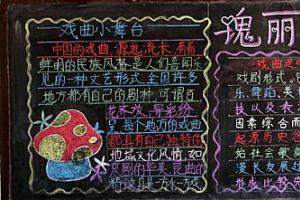 戏曲小舞台
中国的戏曲,源远流长,有着
鲜明的民族风格,是人们喜闻乐
见的一种文艺形式,全国许多
地方都有自己的剧种,可谓百
花齐兴,异彩纷
呈,每个地方的戏曲
都具有自己独特的
地域文化风情,如
京剧的华美,昆曲的
瑰丽
戏剧形式。
乐、舞蹈、美
技以及表
因素综合而
起源历史
始社会歌
漫长发展